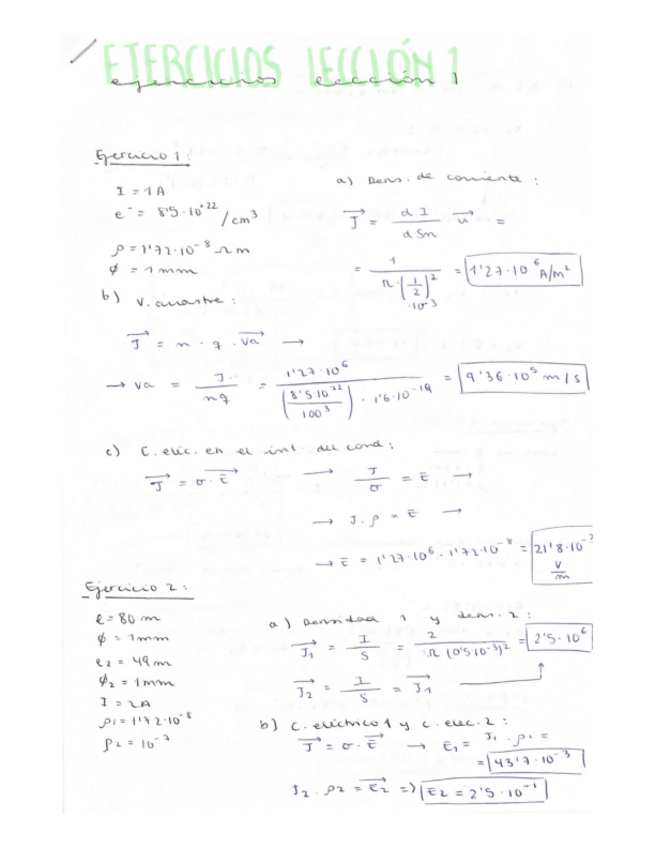 EJERCICIOS LECCIÓN 1
ejercicios lección 1
Ejercicio 1:
I = 1A
e⁻ = 8'5 · 10⁺²² / cm³
ρ = 1'72 · 10⁻⁸ Ω m
φ = 1 mm
a) Dens. de corriente:
J⃗ = dI / dSn u⃗ =
= 1 / π · (1/2)² · 10⁻³ = 1'27 · 10⁶ A/m²
b) V. arrastre:
J⃗ = n · q · Va⃗ →
→ Va = J / nq = 1'27 · 10⁶ / (8'5 10²² / 100³) · 1'6 · 10⁻¹⁹ = 9'36 · 10⁵ m/s
c) C. elec. en el int. del cond:
J⃗ = σ · E⃗ → J / σ = E →
→ J · ρ = E →
→ E = 1'27 · 10⁶ · 1'72 · 10⁻⁸ = 21'8 · 10⁻³ V/m
Ejercicio 2:
l = 80 m
φ = 1 mm
l2 = 49 m
φ2 = 1 mm
I = 2A
ρ1 = 1'72 · 10⁻⁸
ρ2 = 10⁻⁷
a) Densidad 1 y dens. 2:
J1⃗ = I / S = 2 / π (0'5 10⁻³)² = 2'5 · 10⁶
J2⃗ = I / S = J1⃗
b) C. eléctrico 1 y C. elec. 2:
J⃗ = σ · E⃗ → E1 = J1 · ρ1 =
= 43'7 · 10⁻³
J2 · ρ2 = E2⃗ => E2 = 2'5 · 10⁻¹